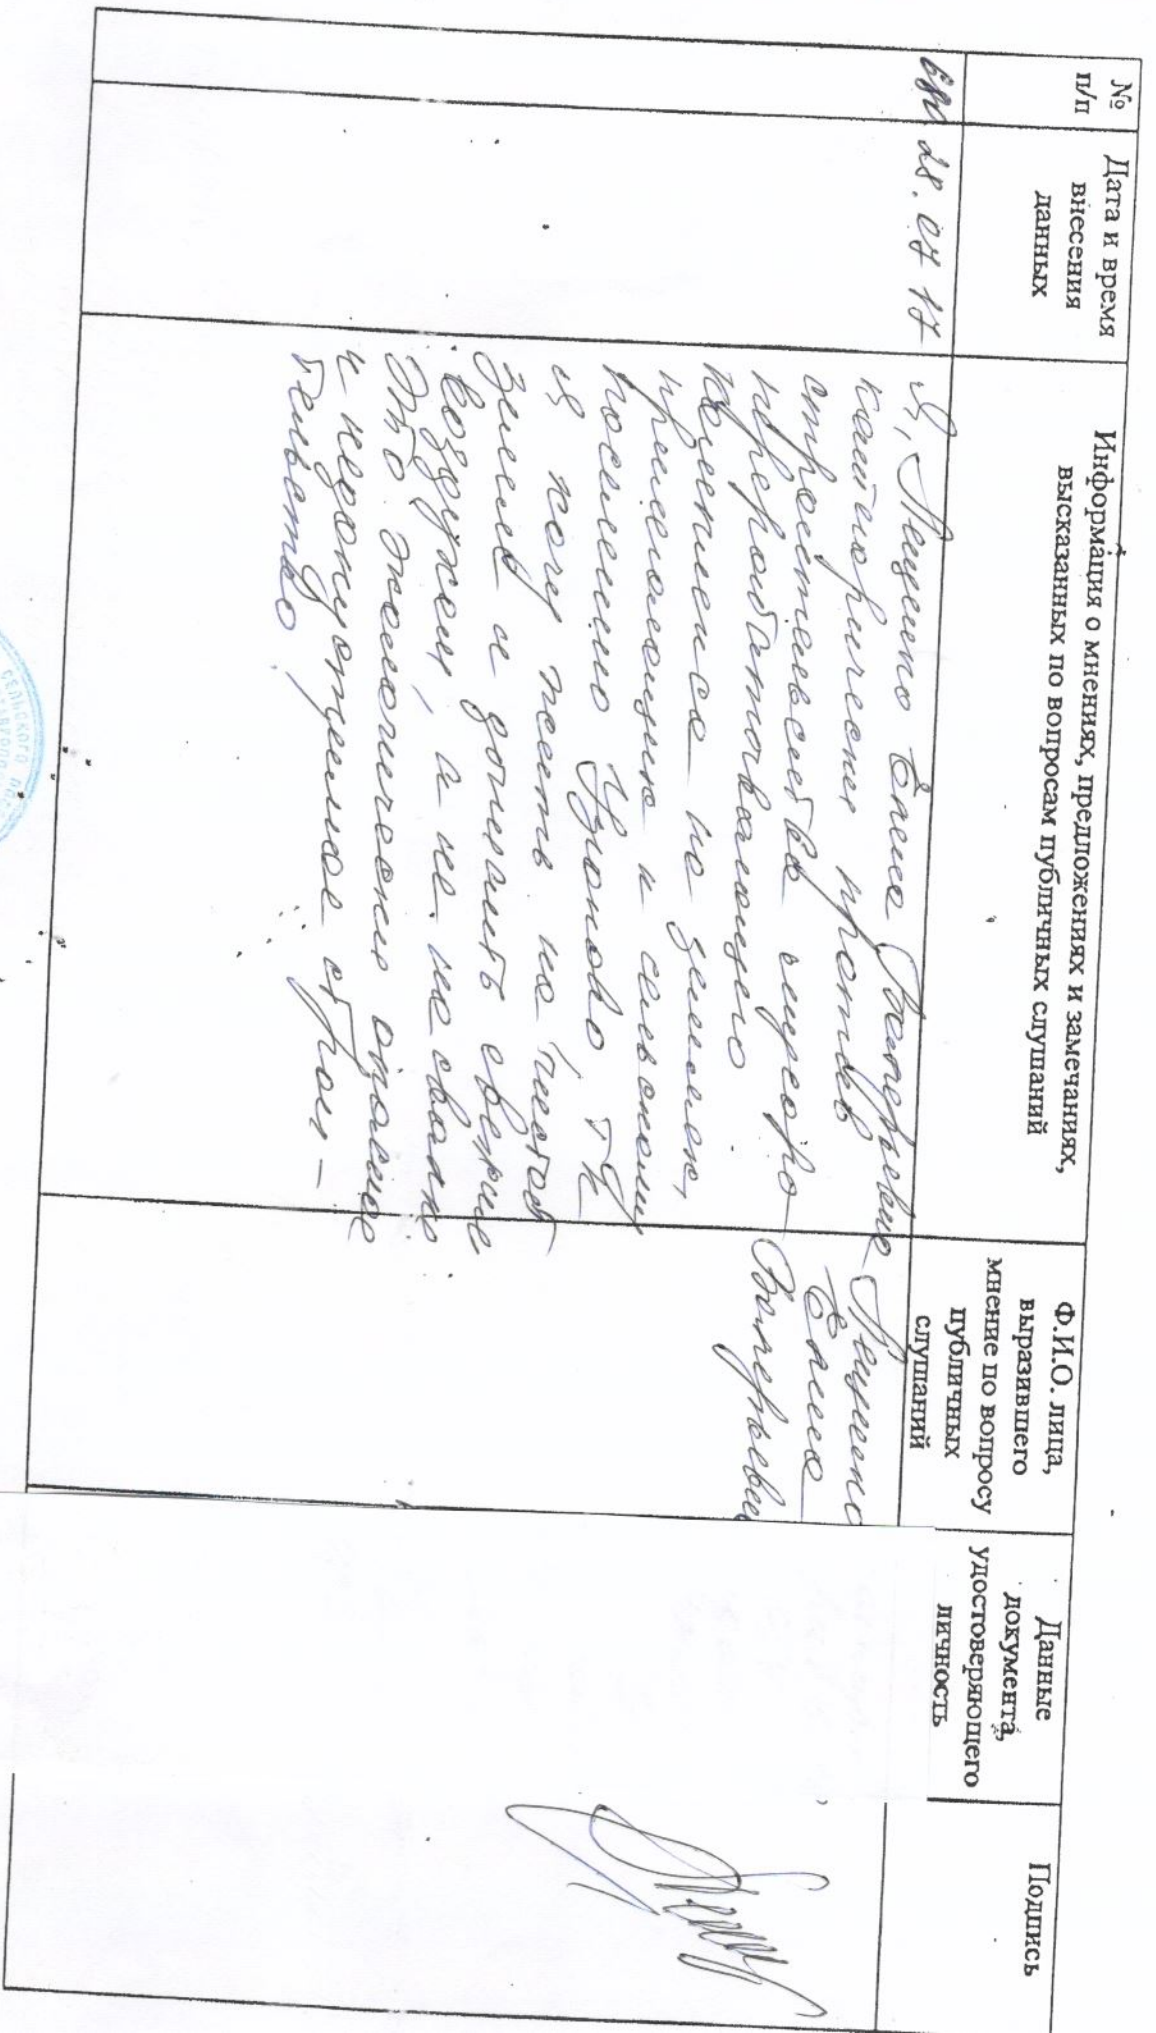 №
п/п
Дата и время
внесения
данных
Информация о мнениях, предложениях и замечаниях,
высказанных по вопросам публичных слушаний
Ф.И.О. лица,
выразившего
мнение по вопросу
публичных
слушаний
Данные
документа,
удостоверяющего
личность
Подпись
680
28.07 17
Я, Лещенко Елена Валерьевна
категорически против
строительства мусоро-
перерабатывающего
комплекса на землях,
прилегающих к сельскому
поселению Узюково, т.к
я хочу жить на чистой
земле и дышать свежим
воздухом, а не на свалке
Это экологически опасное
и недопустимое строи-
тельство.
Елена
СЕЛЬСКОГО